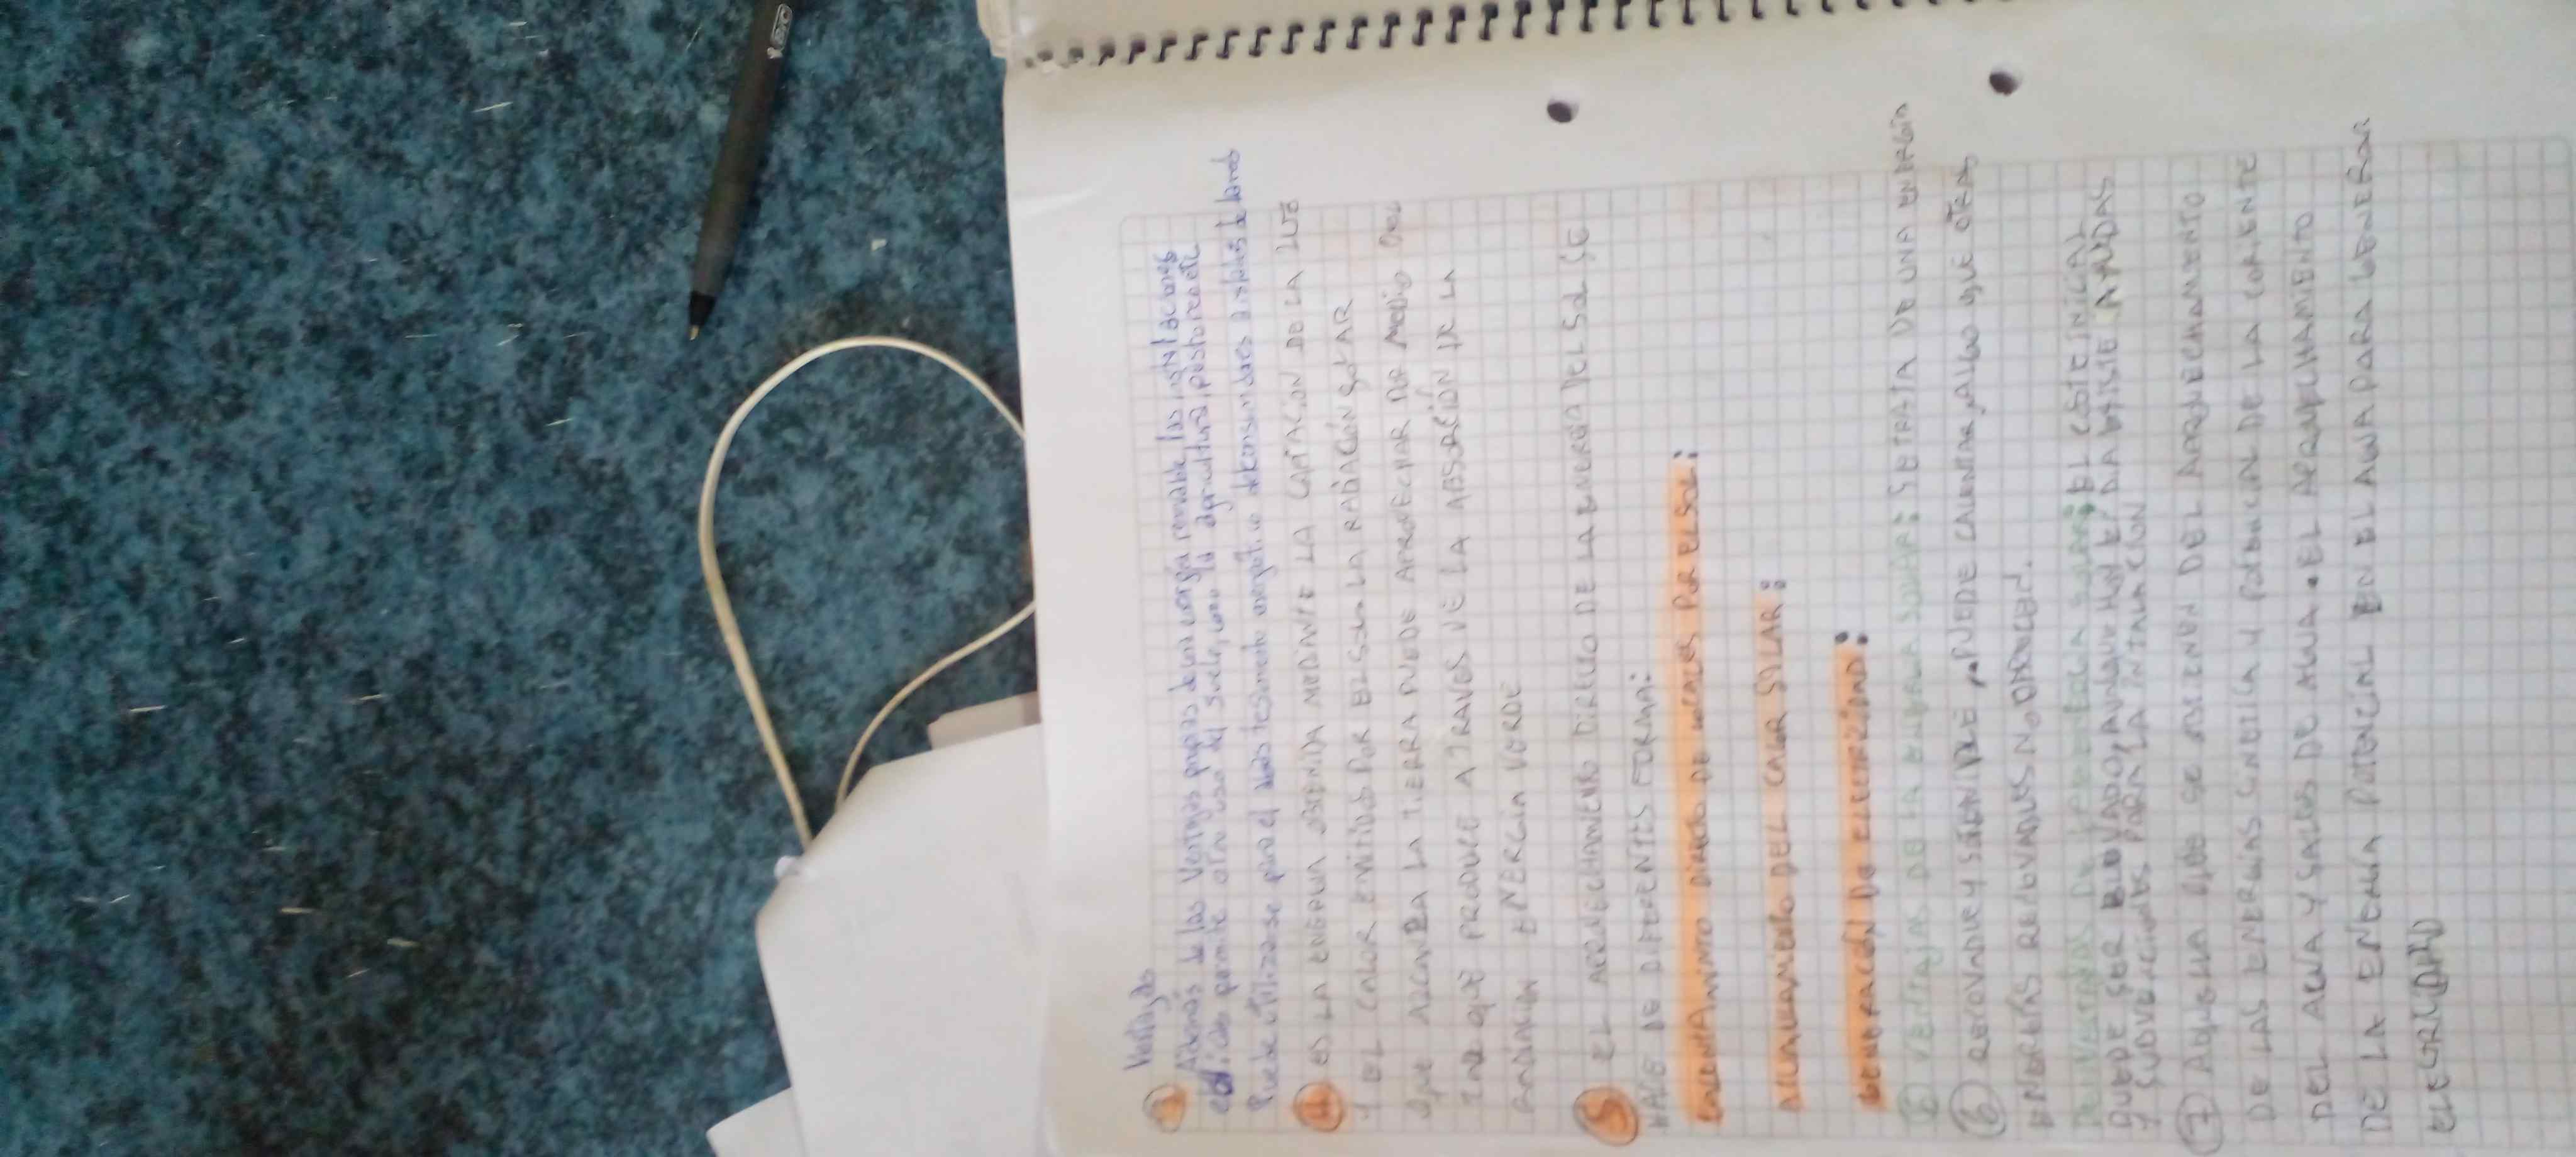 Ventajas
3 Además de las Ventajas propias de una energía renovable, las instalaciones
eolicas permite otro uso del suelo, como la agricultura, pastoreo etc
Puede utilizarse para el
4 ES LA ENERGIA OBTENIDA MEDIANTE LA CAPTACION DE LA LUZ
Y EL CALOR EMITIDO POR EL SOL LA RADIACIÓN SOLAR
QUE ALCANZA LA TIERRA PUEDE APROVECHAR DE MEDIO DEL
QUE PRODUCE A TRAVES DE LA ABSORCIÓN DE LA
RADIACION ENERGIA VERDE
5 EL APROVECHAMIENTO DIRECTO DE LA ENERGIA DEL SOL SE
HACE DE DIFERENTES FORMA:
CALENTAMIENTO DIRECTO DE LOCALES POR EL SOL:
ACUMULAMIENTO DEL CALOR SOLAR:
GENERACION DE ELECTRICIDAD:
6 VENTAJAS DE LA ENERGIA SOLAR: SE TRATA DE UNA ENERGIA
6 RENOVABLE Y PUEDE CALENTAR, ALGO QUE OTRAS
ENERGÍAS RENOVABLES NO PUEDEN.
DESVENTAJAS DE LA ENERGIA SOLAR: EL COSTE INICIAL
PUEDE SER ELEVADO, AUNQUE HOY EN DIA EXISTE AYUDAS
Y SUBVENCIONES PARA LA INSTALACION
7 AQUELLA QUE SE OBTIENEN DEL APROVECHAMIENTO
DE LAS ENERGÍAS CINETICA Y POTENCIAL DE LA CORIENTE
DEL AGUA Y SALTOS DE AGUA. EL APROVECHAMIENTO
DE LA ENERGIA POTENCIAL EN EL AGUA PARA GENERAR
ELESTRICIDAD
BIC